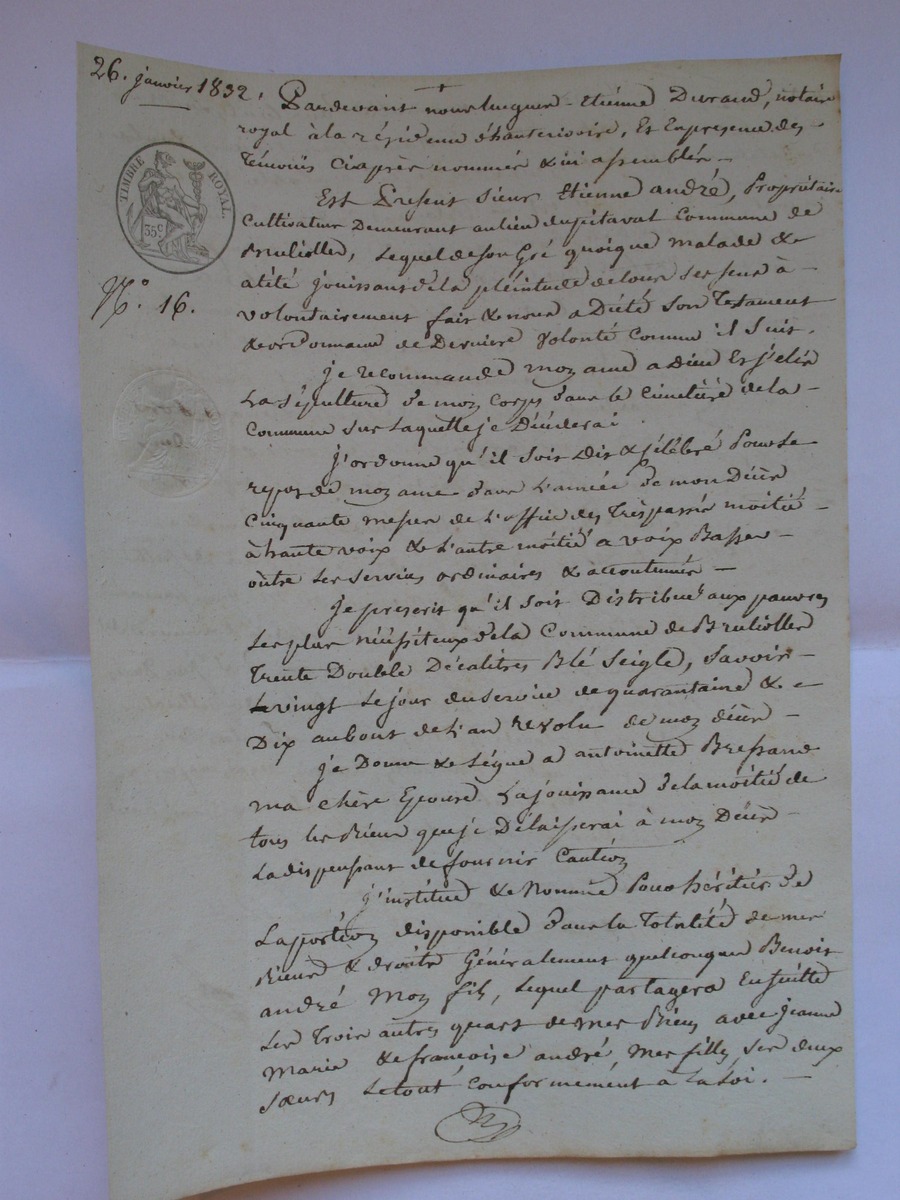 26. janvier 1832.
Pardevant nous Luc Etienne Durand, notaire
royal à la résidence d'hauterivoire, Et En presence des
Témoins Ciaprès nommés & ici assemblés -
TIMBRE ROYAL.
35c
N.° 16.
Est Présent Sieur Etienne andré, Propriétaire
Cultivateur Demeurant au lieu du pitaval Commune de
Bruliolles, Lequel de son Gré quoique malade &
alité jouissant de la pléintude de tous ses sens à -
volontairement fait & nous a Dicté Son Testament
& ordonnance de Derniere volonté Comme il Suit.
je recommande mon ame a Dieu Et j'elis
La Sépulture de mon Corps dans le Cimetière de la -
Commune sur laquelle je Décéderai
J'ordonne qu'il soit Dit & célébré Pour Le
repos de mon ame dans L'année de mon Décès
Cinquante messes de l'office des Trépassés moitié -
à haute voix & l'autre moitié a voix Basse -
outre Les Services ordinaires & accoutumés -
Je prescris qu'il Soit Distribué aux pauvres
Les plus nécéssiteux de la Commune de Brulioller
Trente Double Décalitres Blé Seigle, Savoir -
Le vingt Le jour du service de quarantaine & -
Dix au bout de l'an revolu de mon décès -
je Donne & Légue a antoinette Bressand
ma chère Epouse La jouissance de la moitié de
tous les Biens que je Délaisserai à mon Décès -
La dispensant de fournir Caution
j'institue & Nomme Pour héritier de
La portion disponible dans la Totalité de mes
Biens & droits Généralement quelconque Benoit
andré mon fils, Lequel partagera Ensuitte
Les Trois autres quart de mes Biens avec jeanne
Marie & francoise andré mes filles, ses deux
Sœurs Le tout Conformément à la Loi. -